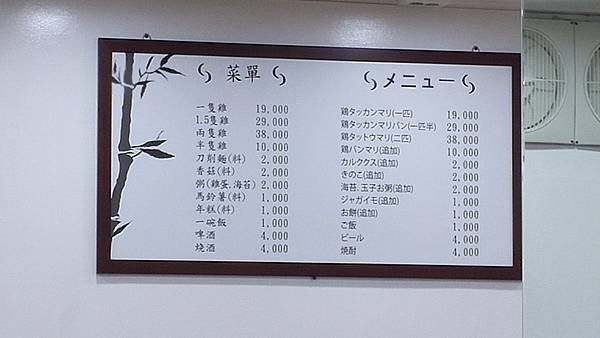 菜單
一隻雞 19,000
1.5隻雞 29,000
兩隻雞 38,000
半隻雞 10,000
刀削麵(料) 2,000
香菇(料) 2,000
粥(雞蛋.海苔) 2,000
馬鈴薯(料) 1,000
年糕(料) 1,000
一碗飯 1,000
啤酒 4,000
燒酒 4,000
メニュー
鶏タッカンマリ(一匹) 19,000
鶏タッカンマリバン(一匹半) 29,000
鶏タットウマリ(二匹) 38,000
鶏バンマリ(追加) 10,000
カルククス(追加) 2,000
きのこ(追加) 2,000
海苔、玉子お粥(追加) 2,000
ジャガイモ(追加) 1,000
お餅(追加) 1,000
ご飯 1,000
ビール 4,000
焼酎 4,000